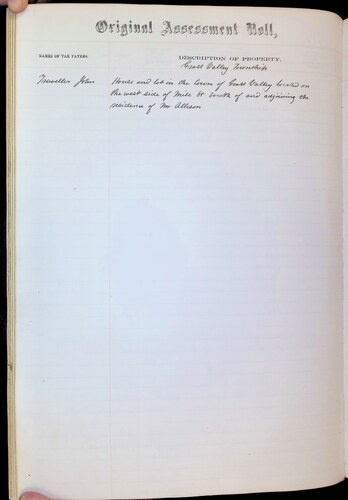 Original Assessment Roll,
NAMES OF TAX PAYERS.
DESCRIPTION OF PROPERTY.
Grass Valley Township
John House and lot in the town of Grass Valley located on
the west side of Mill St South of and adjoining the
residence of Mr Allison